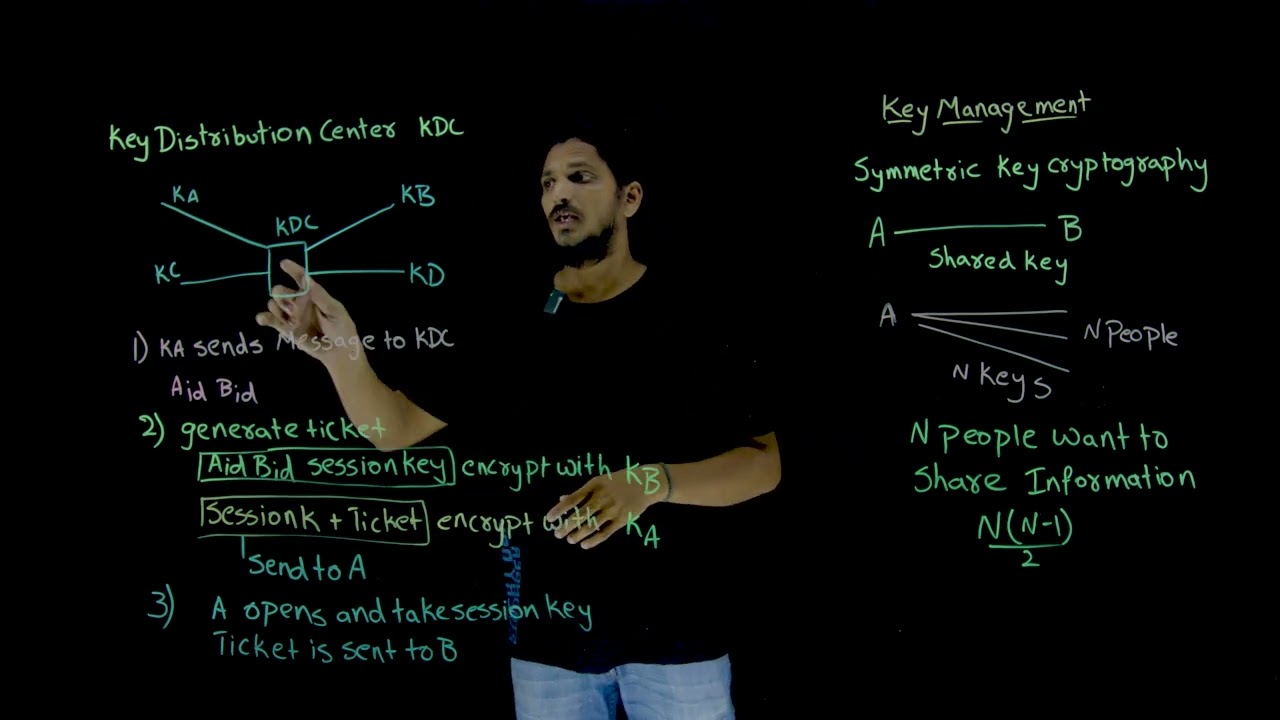 Key Distribution Center KDC
KA
KB
KDC
KC
KD
1) KA sends Message to KDC
Aid Bid
2) generate ticket
Aid Bid session key encrypt with KB
Session K + Ticket encrypt with KA
Send to A
3) A opens and take session key
Ticket is sent to B
Key Management
Symmetric Key cryptography
A B
Shared Key
A
N People
N Keys
N People Want to
Share Information
N(N-1)
2